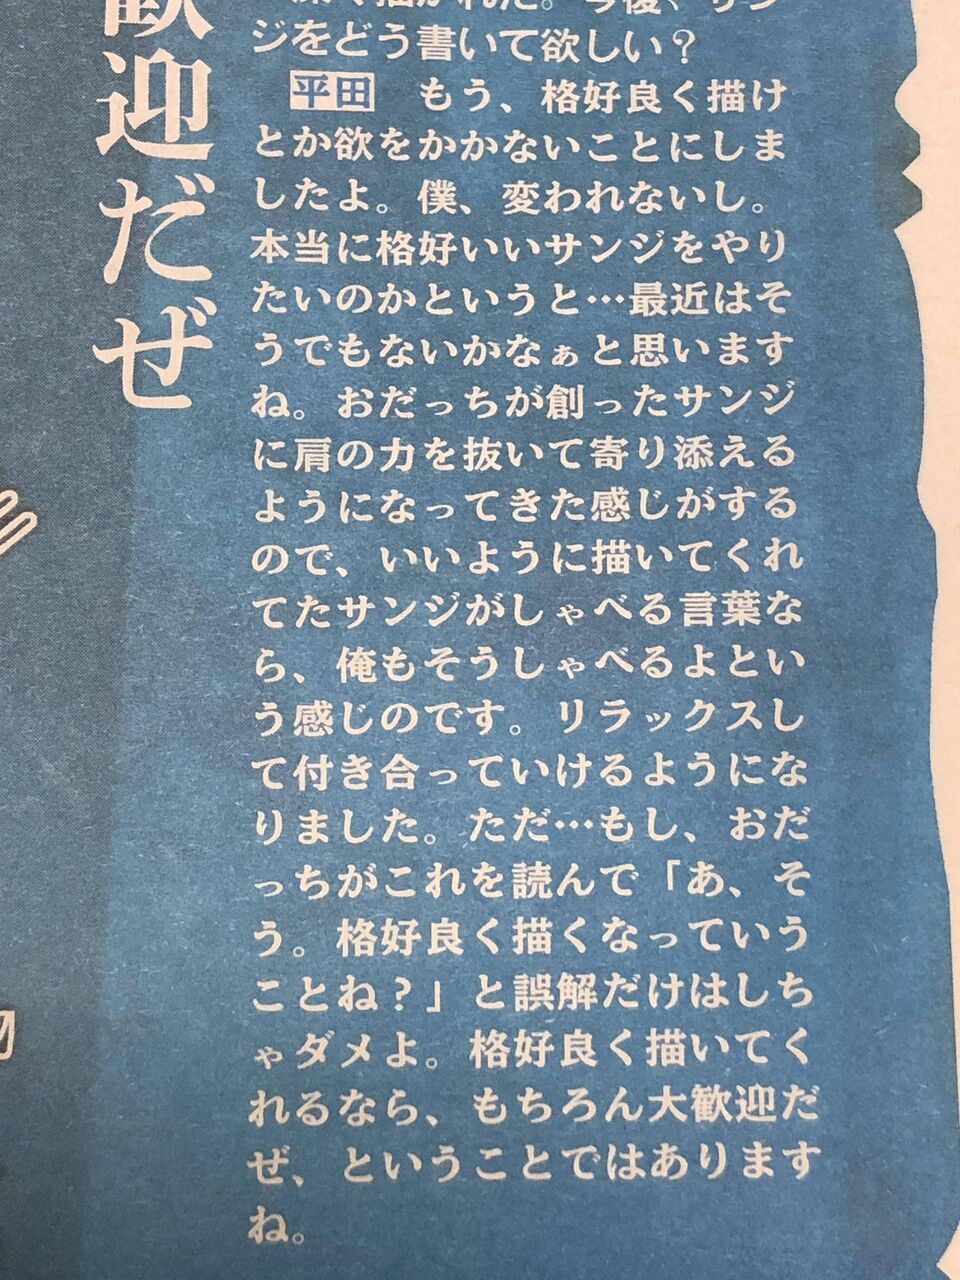 歓迎だぜ
ジをどう書いて欲しい？
平田　もう、格好良く描け
とか欲をかかないことにしま
したよ。僕、変われないし。
本当に格好いいサンジをやり
たいのかというと…最近はそ
うでもないかなぁと思います
ね。おだっちが創ったサンジ
に肩の力を抜いて寄り添える
ようになってきた感じがする
ので、いいように描いてくれ
てたサンジがしゃべる言葉な
ら、俺もそうしゃべるよとい
う感じのです。リラックスし
て付き合っていけるようにな
りました。ただ…もし、おだ
っちがこれを読んで「あ、そ
う。格好良く描くなっていう
ことね？」と誤解だけはしち
ゃダメよ。格好良く描いてく
れるなら、もちろん大歓迎だ
ぜ、ということではあります
ね。